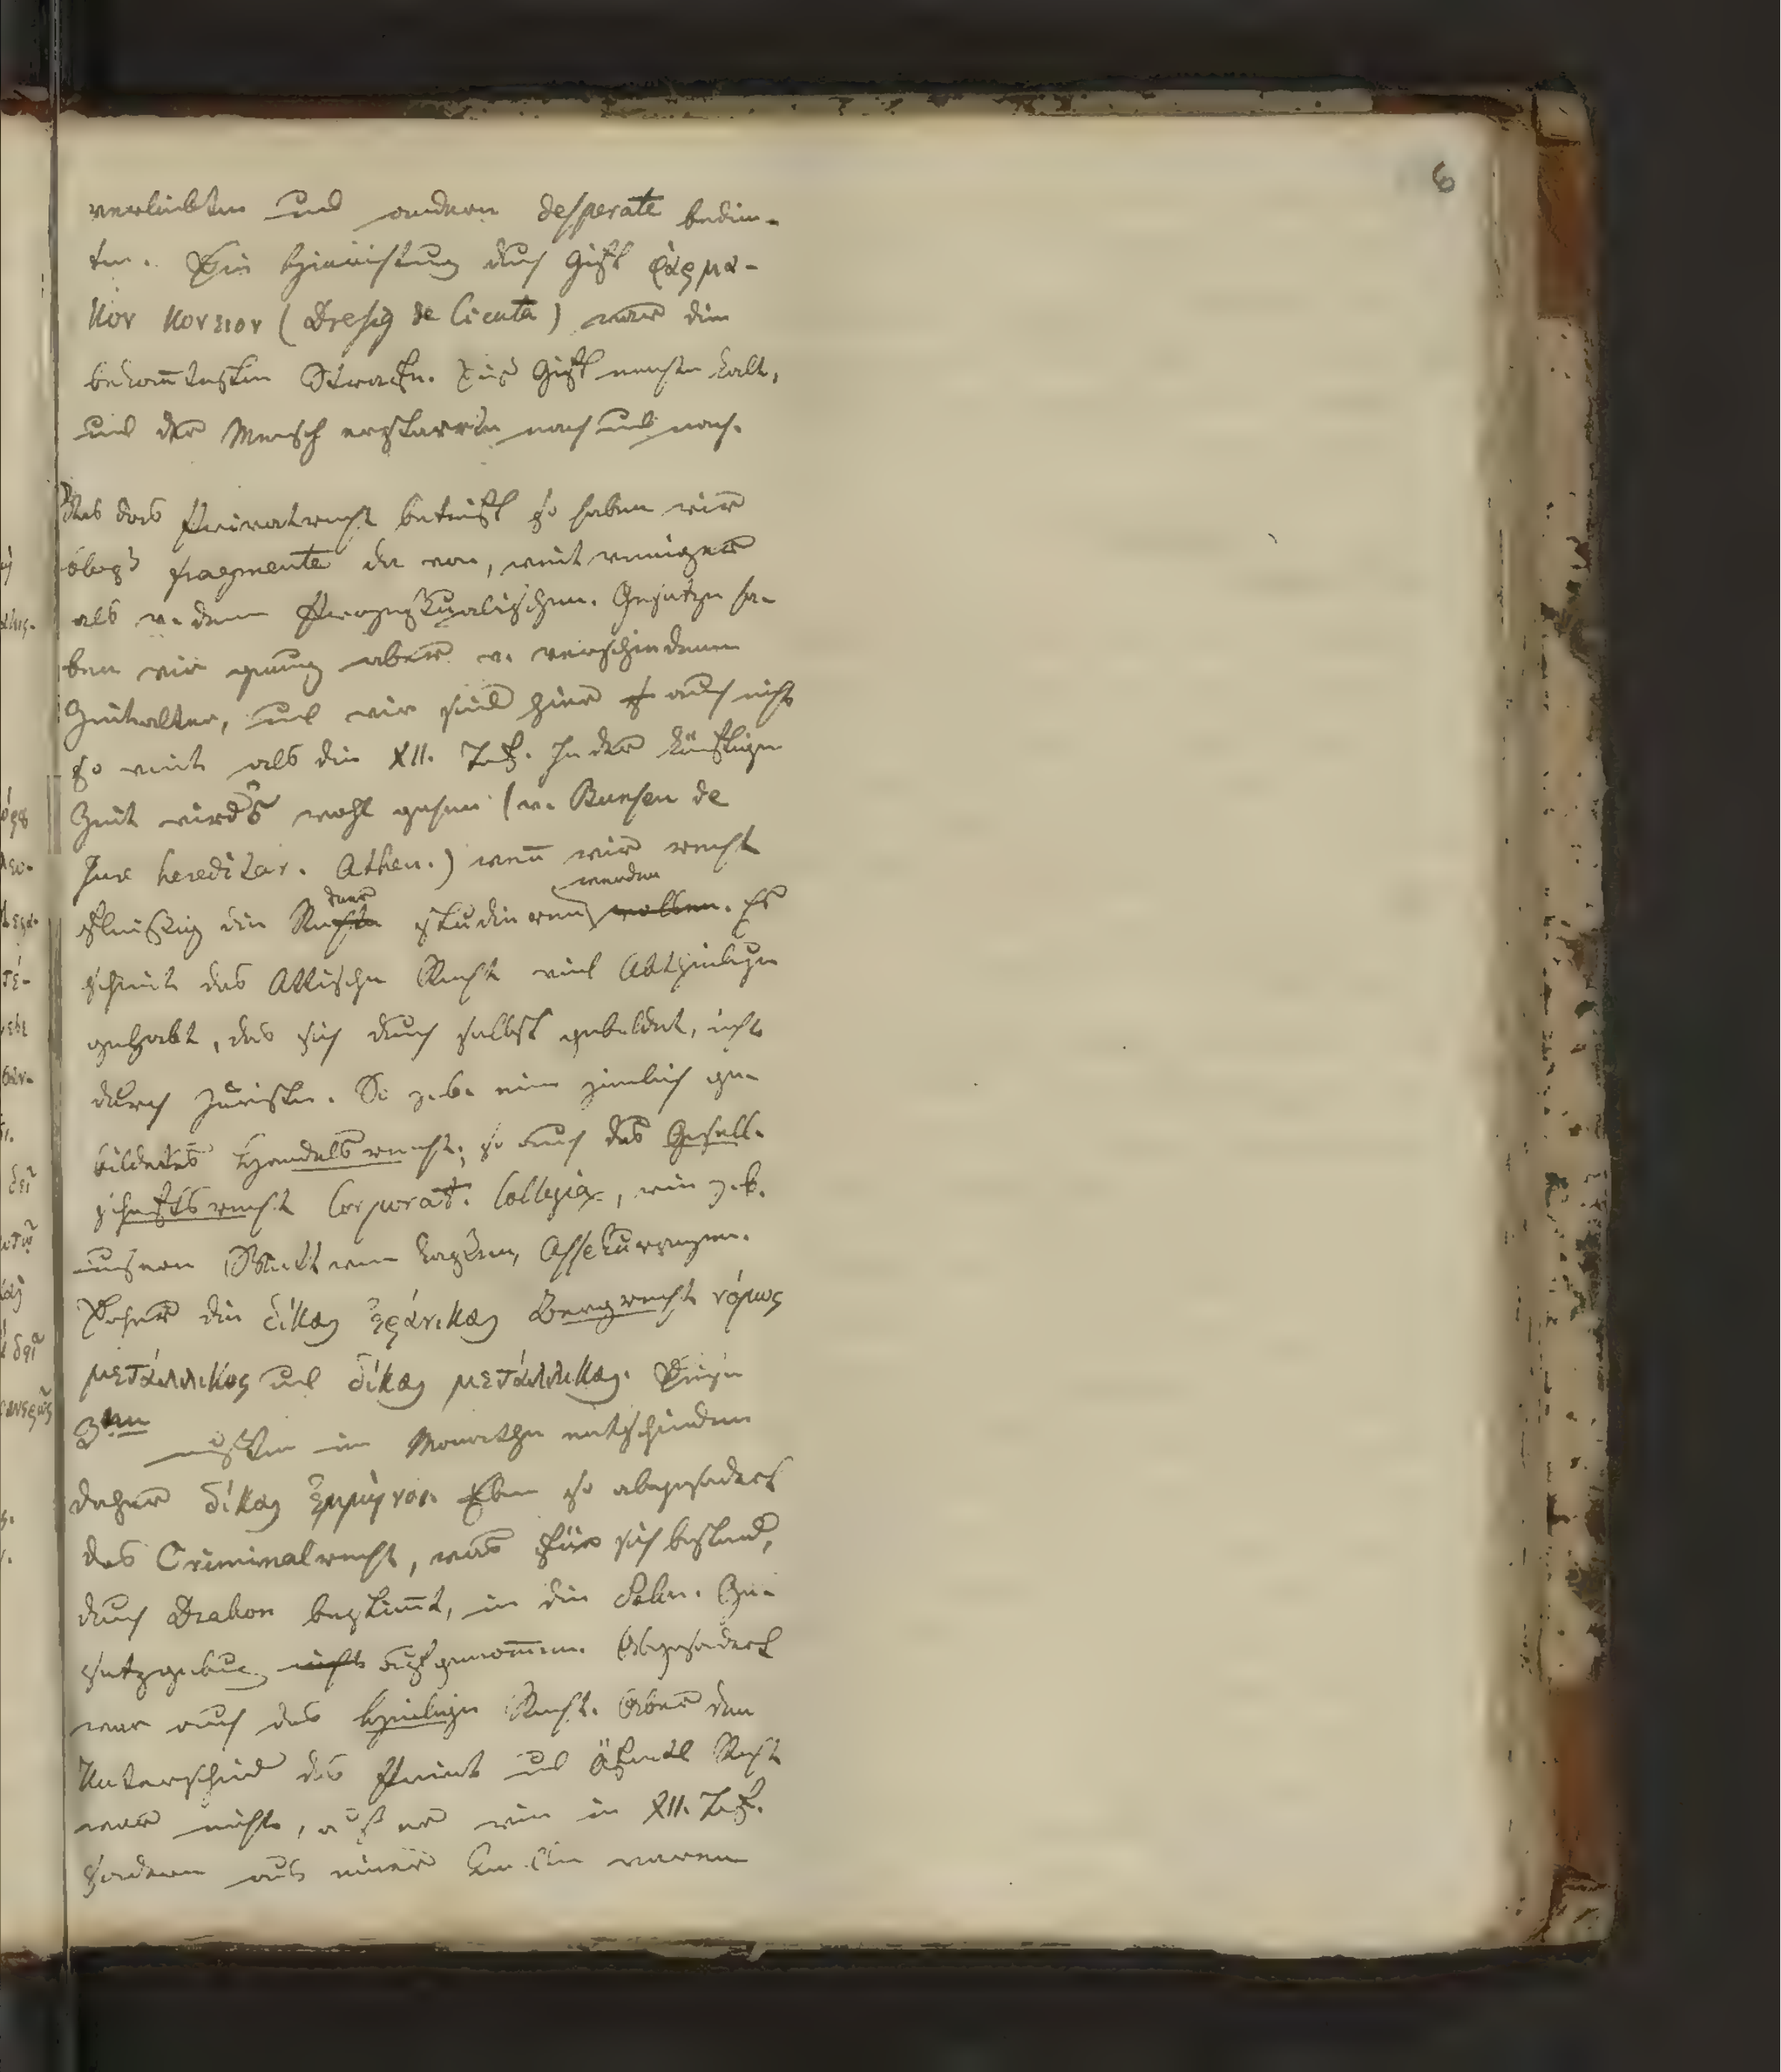 6
verliebten und andern desperate bedien-
ten. Die Hinrichtung durch Gift φάρμα-
κον κονειον (Dresig de Cicuta) war die
bekan̄testen Strafe. Dies Gift machte kalt,
und der Mensch erstarrte nach und nach.
Was das Privatrecht betrifft so haben wir
blos fragmente da von, weit weniger
als v. dem Prozeßualischen. Gesetze ha-
ben wir genug aber v. verschiedenen
Zeitalter, und wir sind hier auch nicht
so weit als die XII. Taf. In der künftigen
Zeit wird's wohl gehen (v. Bunsen de
Jure hereditar. Athen.) wen̄ wir recht
fleißig die Redner studieren werden wollen. Es
scheint das Attische Recht viel Abtheilungen
gehabt, das sich durch selbst gebildet, nicht
durch Juristen. So z.b. ein ziemlich ge-
bildetes Handelsrecht; so auch das Gesell-
schaftsrecht Corporat. Collegia, wie z.b.
unsern Assekuranzen.
Daher die δίκαι ἐράνικαι Bergrecht νόμος
μετάλλικος und δίκαι μετάλλικαι. Diese
mußten im Monathe entschieden
daher δίκαι ἔμμηνοι. Eben so abgesondert
das Criminalrecht, was für sich bestand,
durch Drakon bestim̄t, in die Solon. Ge-
setzgebung nicht aufgenom̄en. Abgesondert
war auch das heilige Recht. Aber den
Unterschied des Privat und öffentl Recht
war nicht, außer wie in XII. Taf.
sondern aus einer waren